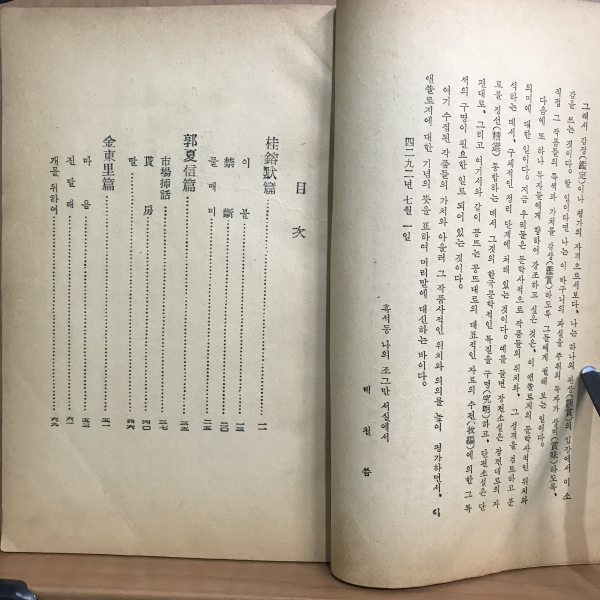 그래서 감정(鑑定)이나 평가의 자격으로서보다, 나는 하나의 관상(觀賞)의 입장에서 이 소
감을 쓰는 것이다. 할 일이라면 나는 이 바구니의 과실을 주위의 독자가 상미(賞味)하도록,
직접 그 작품들의 특색과 가치를 감상(鑑賞)하도록 그들에게 권해 보는 일이다.
다음에 또 하나 독자들에게 향하여 강조하고 싶은 것은, 이 앤쏠로지의 문학사적인 위치와
의미에 대한 일이다. 지금 우리들은 문학사적으로 작품들의 위치와, 그 성격을 검토하고 분
석하는 데서, 구체적인 정리 단계에 처해 있는 것이다. 예를 들면 장편소설은 장편대로의 자
료를 정선(精選) 통합하는 데서 그것의 한국문학적인 특질을 구명(究明)하고, 단편소설은 단
편대로, 그리고 여기서와 같이 꽁뜨는 꽁뜨대로의 대표적인 자료의 수편(收編)에 의한 그 특
색의 구명이 필요한 일로 되어 있는 것이다.
여기 수집된 작품들의 가치와 아울러 그 작품사적인 위치와 의의를 높이 평가하면서, 이
앤쏠로지에 대한 기념의 뜻을 표하여 머리말에 대신하는 바이다.
四二九二년 七월 一일
흑석동 나의 조그만 서실에서
백철 씀
目次
桂鎔默篇……一一
이불……一三
禁斷……二〇
물매미……二五
郭夏信篇……三五
市場揷話……三七
貰房……四〇
탈……四六
金東里篇……五一
마음……五三
진달래……六一
개를 위하여……六九